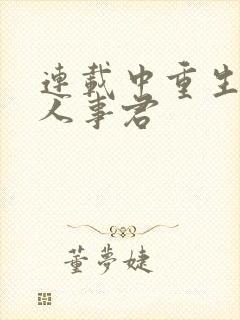 連載中重生
人事君
董夢婕